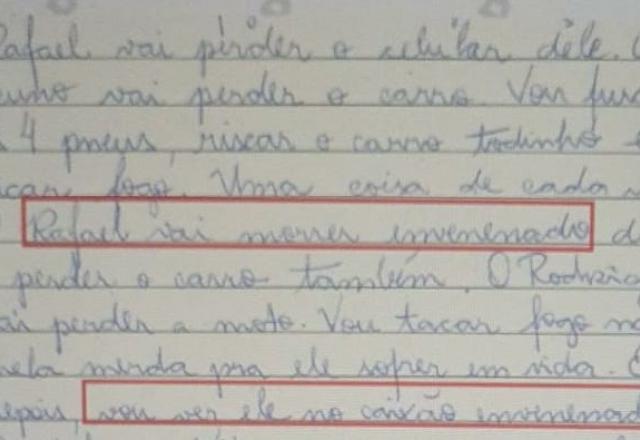 Rafael vai pirder o celular dêle.
vai perder o carro. Vou fura
4 pneus, riscar o carro todinho
tacar fogo. Uma coisa de cada
Rafael vai morrer envenenado d
perder o carro também. O Rodrigo
vai perder a moto. Vou tacar fogo n
nela merda pra ele sofrer em vida.
depois, vou ver ele no caixão envenenad